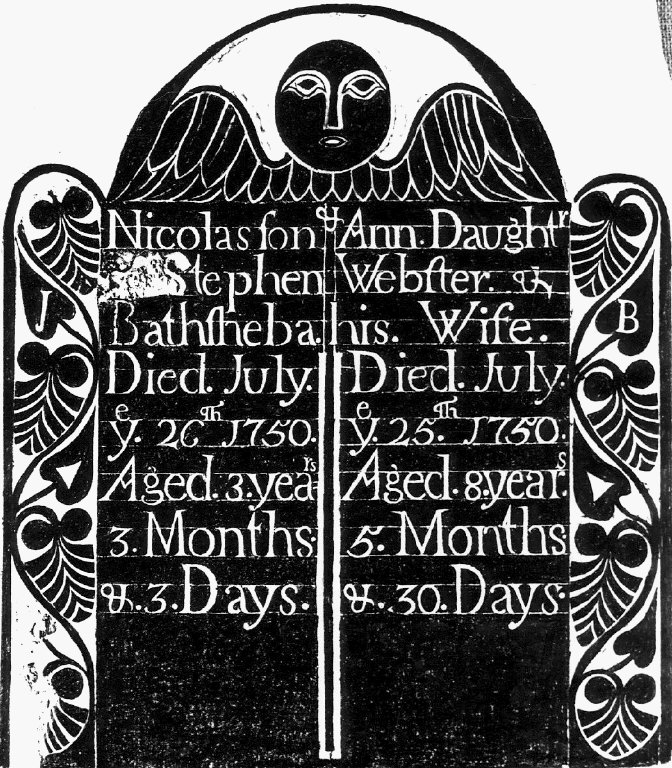 Nicolas ſon & Ann. Daughtʳ
Stephen Webſter. &
J
Bathſheba. his. Wife.
B
Died. July. Died. July.
yᵉ. 26ᵗʰ 1750. yᵉ. 25.ᵗʰ 1750.
Aged. 3. yeaʳˢ Aged. 8. yearˢ.
3. Months. 5. Months.
&. 3. Days. &. 30. Days.